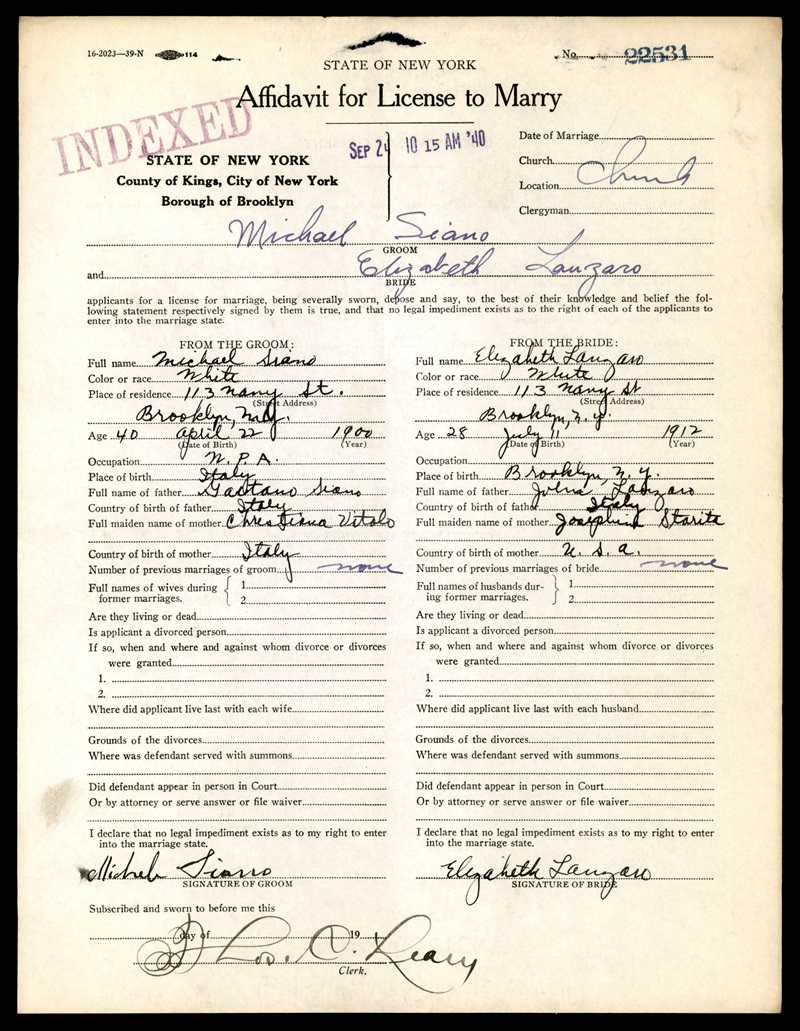 16-2023—39-N 114
No. 22531
STATE OF NEW YORK
Affidavit for License to Marry
INDEXED
SEP 24 10 15 AM '40
Date of Marriage
STATE OF NEW YORK
Church
County of Kings, City of New York
Location Church
Borough of Brooklyn
Clergyman
Michael Siano
GROOM
and Elizabeth Lanzaro
BRIDE
applicants for a license for marriage, being severally sworn, depose and say, to the best of their knowledge and belief the fol-
lowing statement respectively signed by them is true, and that no legal impediment exists as to the right of each of the applicants to
enter into the marriage state.
FROM THE GROOM:
Full name Michael Siano
Color or race White
Place of residence 113 Navy St.
(Street Address)
Brooklyn, N.Y.
Age 40 April 22 1900
(Date of Birth) (Year)
Occupation W.P.A.
Place of birth Italy
Full name of father Gaetano Siano
Country of birth of father Italy
Full maiden name of mother Christiana Vitolo
Country of birth of mother Italy
Number of previous marriages of groom none
Full names of wives during
former marriages.
1
2
Are they living or dead
Is applicant a divorced person
If so, when and where and against whom divorce or divorces
were granted
1.
2.
Where did applicant live last with each wife
Grounds of the divorces
Where was defendant served with summons
Did defendant appear in person in Court
Or by attorney or serve answer or file waiver
I declare that no legal impediment exists as to my right to enter
into the marriage state.
Michele Siano
SIGNATURE OF GROOM
FROM THE BRIDE:
Full name Elizabeth Lanzaro
Color or race White
Place of residence 113 Navy St
(Street Address)
Brooklyn, N.Y.
Age 28 July 11 1912
(Date of Birth) (Year)
Occupation
Place of birth Brooklyn, N.Y.
Full name of father John Lanzaro
Country of birth of father Italy
Full maiden name of mother Josephine Starita
Country of birth of mother U.S.A.
Number of previous marriages of bride none
Full names of husbands dur-
ing former marriages.
1
2
Are they living or dead
Is applicant a divorced person
If so, when and where and against whom divorce or divorces
were granted
1.
2.
Where did applicant live last with each husband
Grounds of the divorces
Where was defendant served with summons
Did defendant appear in person in Court
Or by attorney or serve answer or file waiver
I declare that no legal impediment exists as to my right to enter
into the marriage state.
Elizabeth Lanzaro
SIGNATURE OF BRIDE
Subscribed and sworn to before me this
day of 19
C. Leary
Clerk.